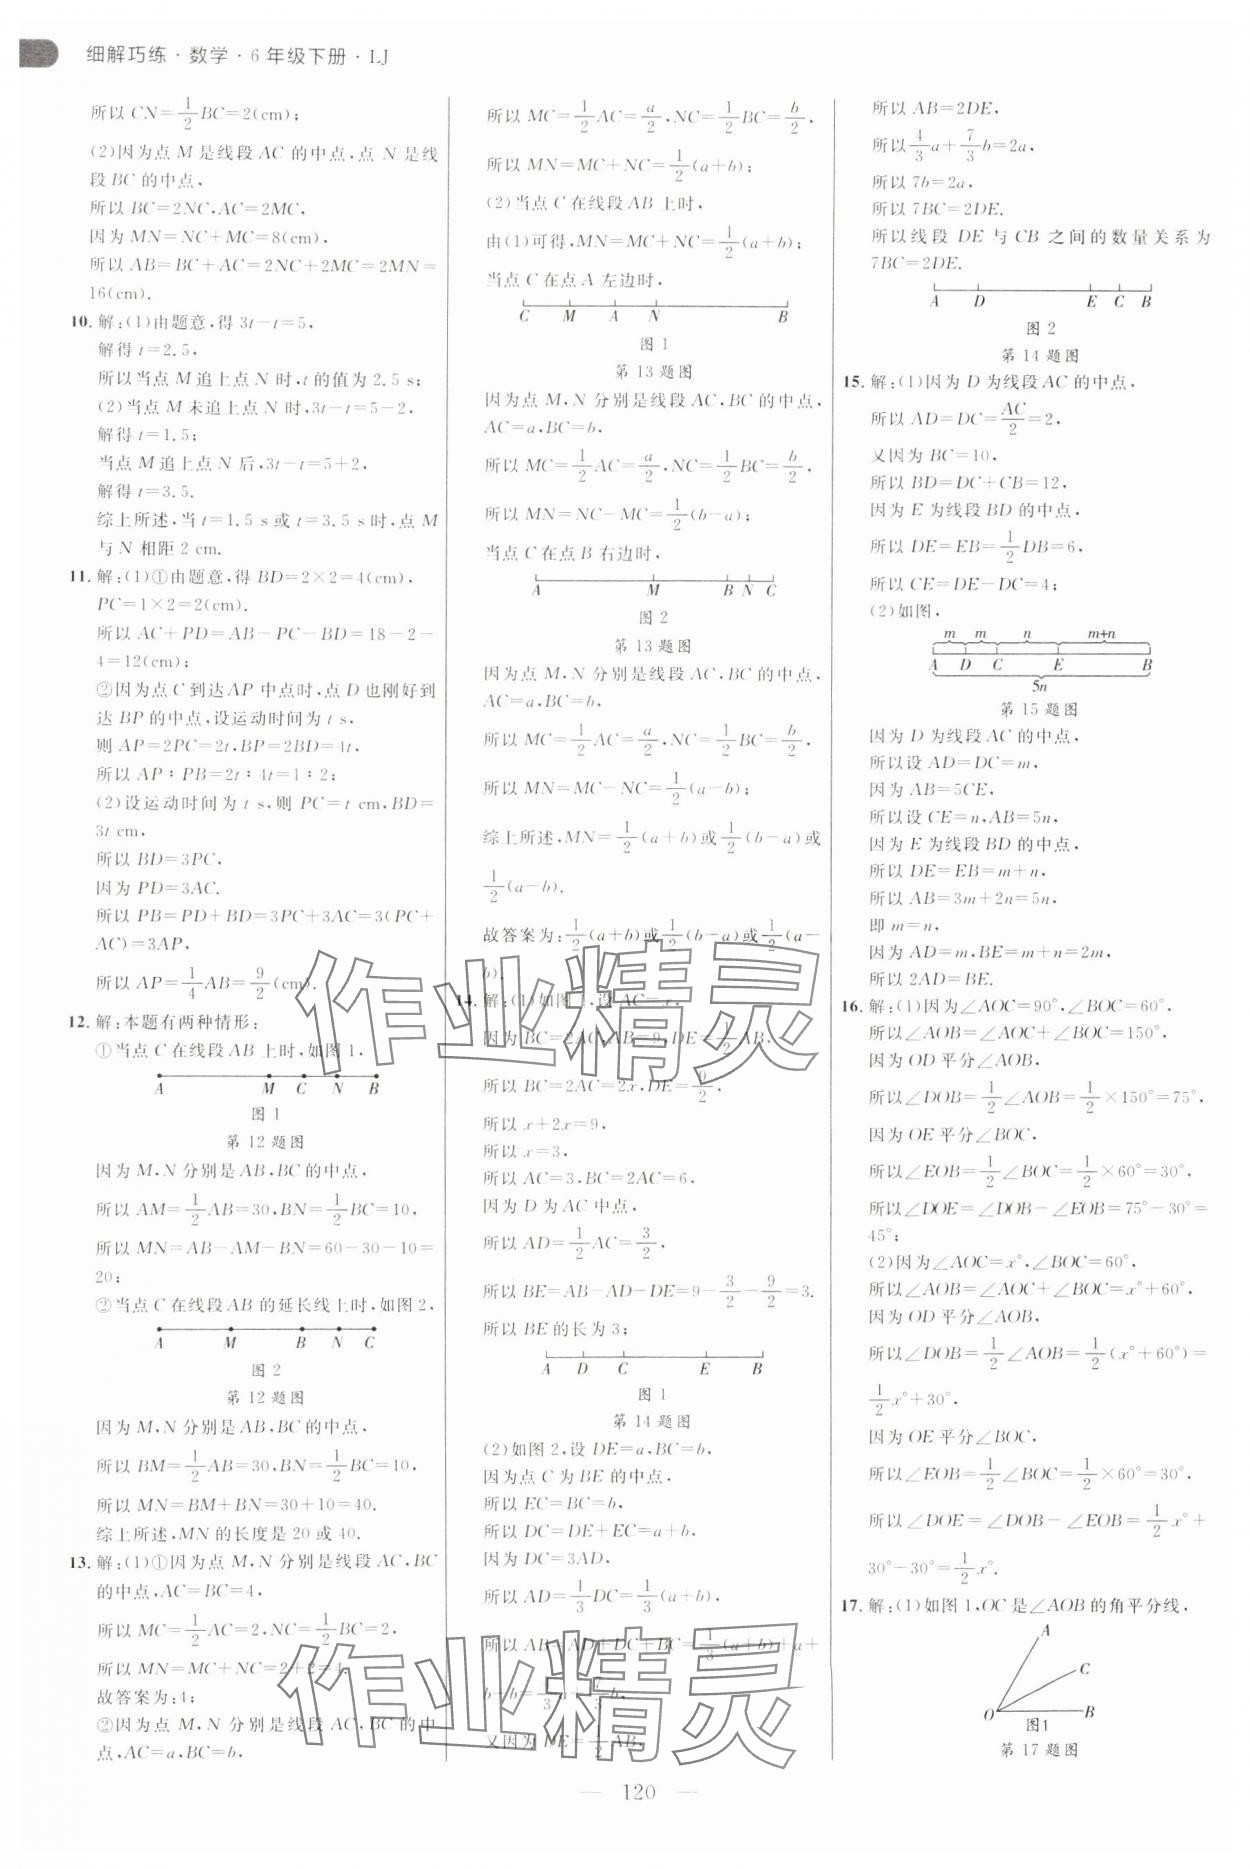 细解巧练·数学·6年级下册·LJ
所以 CN=1/2BC=2(cm);
(2)因为点 M 是线段 AC 的中点,点 N 是线
段 BC 的中点,
所以 BC=2NC,AC=2MC,
因为 MN=NC+MC=8(cm),
所以 AB=BC+AC=2NC+2MC=2MN=
16(cm).
10. 解:(1)由题意,得 3t-t=5,
解得 t=2.5,
所以当点 M 追上点 N 时,t 的值为 2.5 s;
(2)当点 M 未追上点 N 时,3t-t=5-2,
解得 t=1.5;
当点 M 追上点 N 后,3t-t=5+2,
解得 t=3.5.
综上所述,当 t=1.5 s 或 t=3.5 s 时,点 M
与 N 相距 2 cm.
11. 解:(1)①由题意,得 BD=2×2=4(cm),
PC=1×2=2(cm).
所以 AC+PD=AB-PC-BD=18-2-
4=12(cm);
②因为点 C 到达 AP 中点时,点 D 也刚好到
达 BP 的中点,设运动时间为 t s,
则 AP=2PC=2t,BP=2BD=4t,
所以 AP:PB=2t:4t=1:2;
(2)设运动时间为 t s,则 PC=t cm,BD=
3t cm,
所以 BD=3PC,
因为 PD=3AC.
所以 PB=PD+BD=3PC+3AC=3(PC+
AC)=3AP,
所以 AP=1/4AB=9/2(cm).
12. 解:本题有两种情形:
①当点 C 在线段 AB 上时,如图 1,
A M C N B
图 1
第 12 题图
因为 M,N 分别是 AB,BC 的中点,
所以 AM=1/2AB=30,BN=1/2BC=10,
所以 MN=AB-AM-BN=60-30-10=
20;
②当点 C 在线段 AB 的延长线上时,如图 2,
A M B N C
图 2
第 12 题图
因为 M,N 分别是 AB,BC 的中点,
所以 BM=1/2AB=30,BN=1/2BC=10,
所以 MN=BM+BN=30+10=40.
综上所述,MN 的长度是 20 或 40.
13. 解:(1)①因为点 M,N 分别是线段 AC,BC
的中点,AC=BC=4,
所以 MC=1/2AC=2,NC=1/2BC=2,
所以 MN=MC+NC=2+2=4.
故答案为:4;
②因为点 M,N 分别是线段 AC,BC 的中
点,AC=a,BC=b,
所以 MC=1/2AC=a/2,NC=1/2BC=b/2,
所以 MN=MC+NC=1/2(a+b);
(2)当点 C 在线段 AB 上时,
由(1)可得,MN=MC+NC=1/2(a+b);
当点 C 在点 A 左边时,
C M A N B
图 1
第 13 题图
因为点 M,N 分别是线段 AC,BC 的中点,
AC=a,BC=b,
所以 MC=1/2AC=a/2,NC=1/2BC=b/2,
所以 MN=NC-MC=1/2(b-a);
当点 C 在点 B 右边时,
A M B N C
图 2
第 13 题图
因为点 M,N 分别是线段 AC,BC 的中点,
AC=a,BC=b,
所以 MC=1/2AC=a/2,NC=1/2BC=b/2,
所以 MN=MC-NC=1/2(a-b);
综上所述,MN=1/2(a+b)或1/2(b-a)或
1/2(a-b).
故答案为:1/2(a+b)或1/2(b-a)或1/2(a-
b).
14. 解:(1)如图 1,设 AC=x,
因为 BC=2AC,AB=9,DE=1/2AB,
所以 BC=2AC=2x,DE=9/2,
所以 x+2x=9,
所以 x=3,
所以 AC=3,BC=2AC=6,
因为 D 为 AC 中点,
所以 AD=1/2AC=3/2,
所以 BE=AB-AD-DE=9-3/2-9/2=3.
所以 BE 的长为 3;
A D C E B
图 1
第 14 题图
(2)如图 2,设 DE=a,BC=b,
因为点 C 为 BE 的中点,
所以 EC=BC=b,
所以 DC=DE+EC=a+b,
因为 DC=3AD,
所以 AD=1/3DC=1/3(a+b),
所以 AB=AD+DC+BC=1/3(a+b)+a+
又因为 DE=1/2AB,
所以 AB=2DE,
所以4/3a+7/3b=2a,
所以 7b=2a,
所以 7BC=2DE.
所以线段 DE 与 CB 之间的数量关系为
7BC=2DE.
A D E C B
图 2
第 14 题图
15. 解:(1)因为 D 为线段 AC 的中点,
所以 AD=DC=AC/2=2,
又因为 BC=10,
所以 BD=DC+CB=12,
因为 E 为线段 BD 的中点,
所以 DE=EB=1/2DB=6,
所以 CE=DE-DC=4;
(2)如图,
m m n m+n
A D C E B
5n
第 15 题图
因为 D 为线段 AC 的中点,
所以设 AD=DC=m,
因为 AB=5CE,
所以设 CE=n,AB=5n,
因为 E 为线段 BD 的中点,
所以 DE=EB=m+n,
所以 AB=3m+2n=5n,
即 m=n,
因为 AD=m,BE=m+n=2m,
所以 2AD=BE.
16. 解:(1)因为∠AOC=90°,∠BOC=60°,
所以∠AOB=∠AOC+∠BOC=150°,
因为 OD 平分∠AOB,
所以∠DOB=1/2∠AOB=1/2×150°=75°,
因为 OE 平分∠BOC,
所以∠EOB=1/2∠BOC=1/2×60°=30°,
所以∠DOE=∠DOB-∠EOB=75°-30°=
45°;
(2)因为∠AOC=x°,∠BOC=60°,
所以∠AOB=∠AOC+∠BOC=x°+60°,
因为 OD 平分∠AOB,
所以∠DOB=1/2∠AOB=1/2(x°+60°)=
1/2x°+30°.
因为 OE 平分∠BOC,
所以∠EOB=1/2∠BOC=1/2×60°=30°,
所以∠DOE=∠DOB-∠EOB=1/2x°+
30°-30°=1/2x°.
17. 解:(1)如图 1,OC 是∠AOB 的角平分线,
A
C
O B
图1
第 17 题图
— 120 —
作业精灵
作业精灵